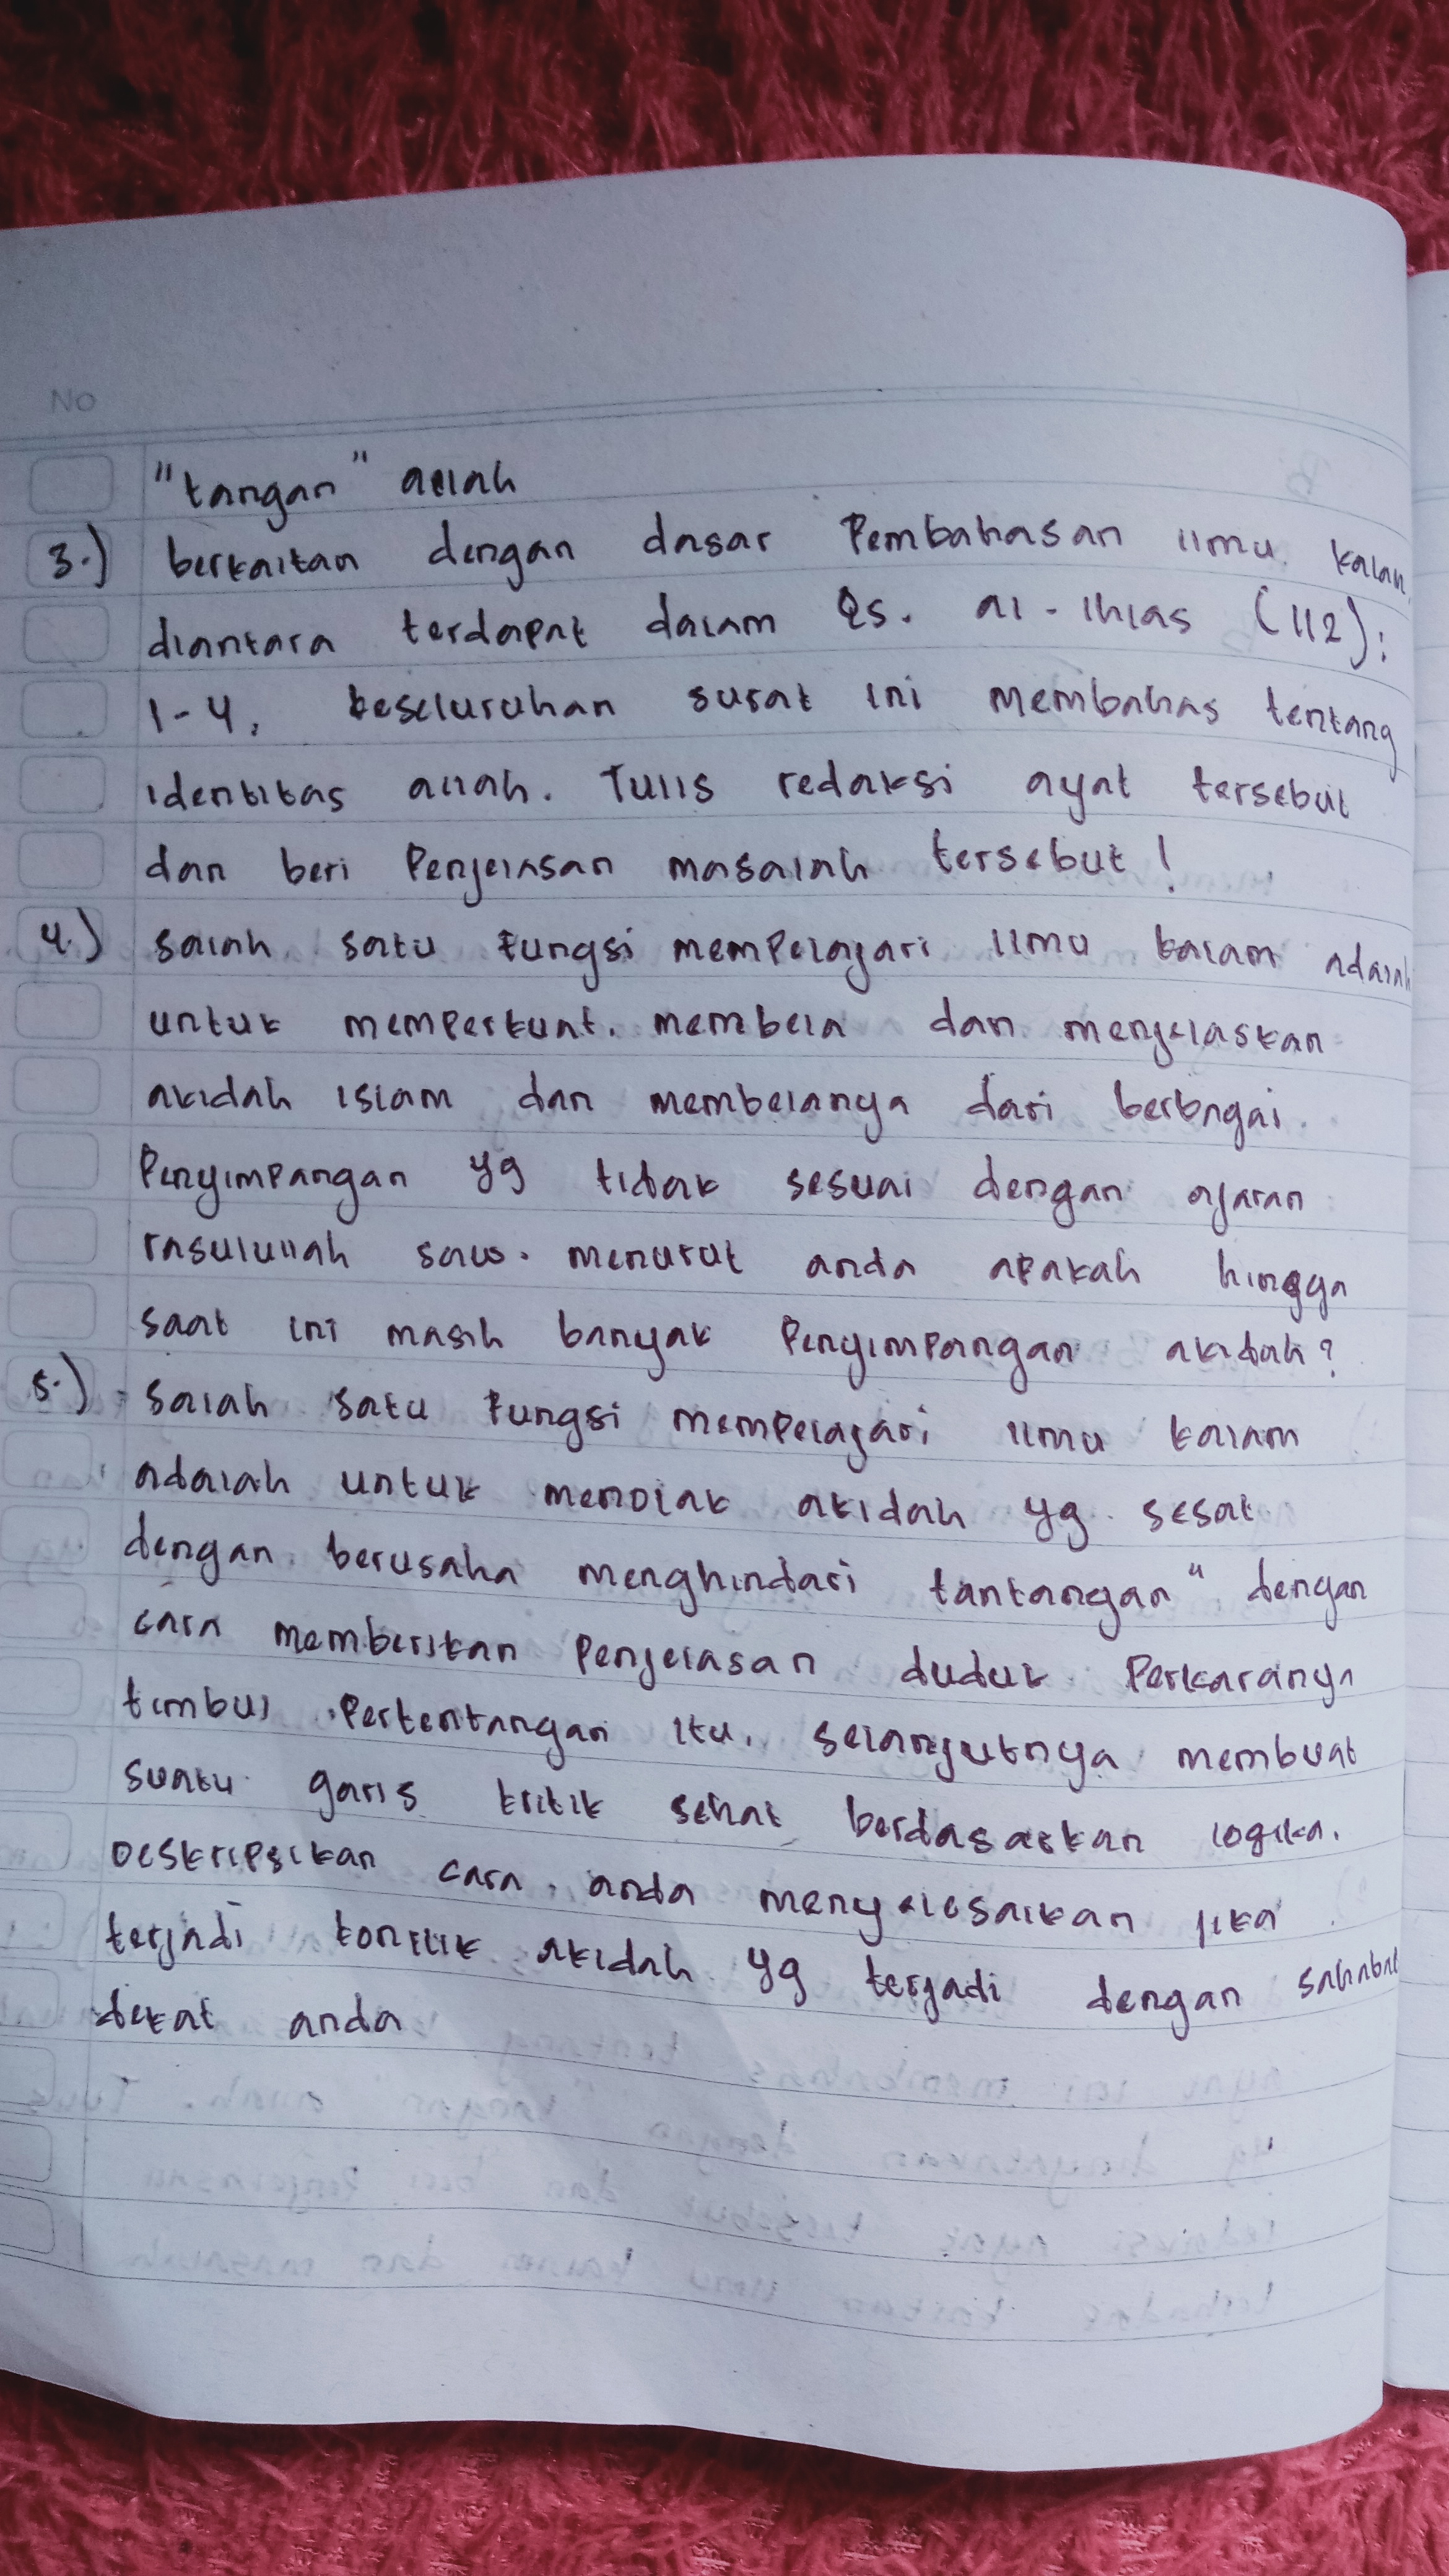 No
"tangan" allah
3.) berkaitan dengan dasar Pembahasan ilmu kalam
diantara terdapat dalam Qs. al-Ihlas (112):
1-4, keseluruhan surat ini membahas tentang
identitas allah. Tulis redaksi ayat tersebut
dan beri Penjelasan masalah tersebut!
4.) salah satu fungsi mempelajari ilmu kalam adalah
untuk memperkuat, membela dan menjelaskan
akidah islam dan membelanya dari berbagai
Penyimpangan yg tidak sesuai dengan ajaran
rasulullah saw. menurut anda apakah hingga
saat ini masih banyak Penyimpangan akidah?
5.) salah satu fungsi mempelajari ilmu kalam
adalah untuk menolak akidah yg sesat
dengan berusaha menghindari tantangan" dengan
cara memberikan Penjelasan duduk Perkaranya
timbul Pertentangan itu, selanjutnya membuat
suatu garis kritik sehat berdasarkan logika.
Deskripsikan cara anda menyelesaikan jika
terjadi konflik akidah yg terjadi dengan sahabat
dekat anda